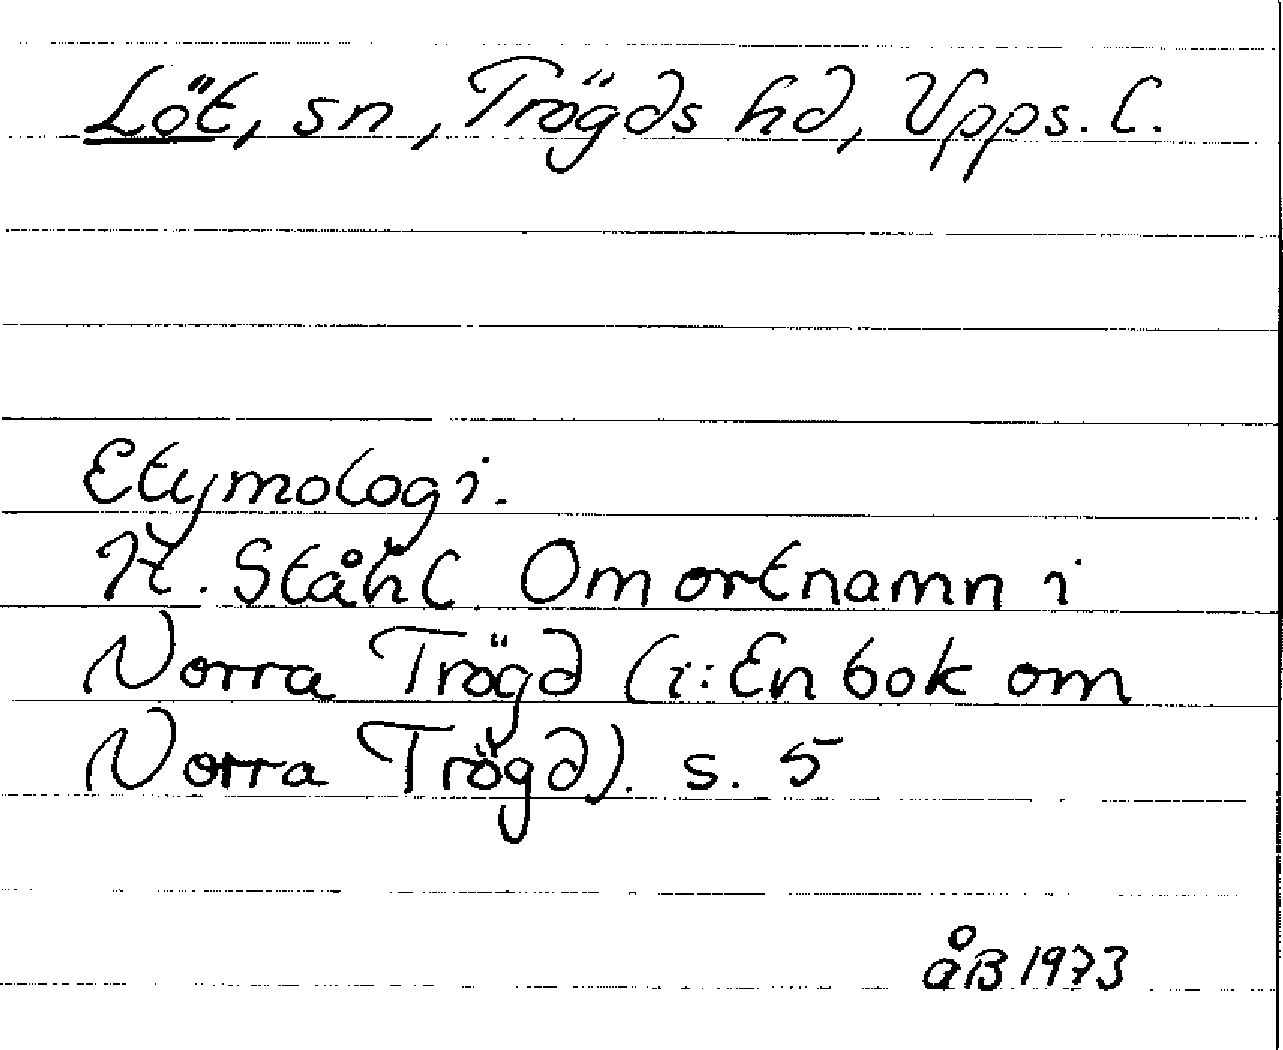 Löt, sn, Trögds hd, Upps. l.
Etymologi.
H. Ståhl. Om ortnamn i
Norra Trögd (i: En bok om
Norra Trögd). s. 5
åB 1973